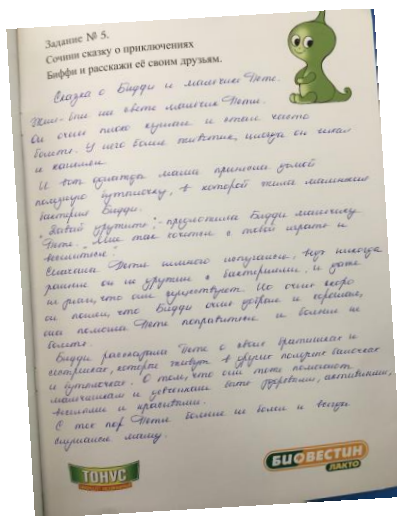 Задание № 5.
Сочини сказку о приключениях
Биффи и расскажи её своим друзьям.
Сказка о Биффи и мальчике Пете.
Жил-был на свете мальчик Петя.
Он очень плохо кушал и очень часто
болел. У него болел животик, иногда он чихал
и кашлял.
И вот однажды мама принесла домой
полезную бутылочку, в которой жила маленькая
бактерия Биффи.
"Давай дружить!" - предложила Биффи мальчику
Пете. "Мне так хочется с тобой играть и
веселиться!"
Сначала Петя немного испугался, ведь никогда
раньше он не дружил с бактериями, и даже
не знал, что они существуют. Но очень скоро
он понял, что Биффи очень добрая и хорошая,
она помогла Пете поправиться и больше не
болеть.
Биффи рассказала Пете о своих братишках и
сестричках, которые живут в других полезных баночках
и бутылочках. О том, что они тоже помогают
мальчишкам и девчонкам быть здоровыми, активными,
весёлыми и красивыми.
С тех пор Петя больше не болел и всегда
слушался маму.
ТОНУС
БИОВЕСТИН
ЛАКТО